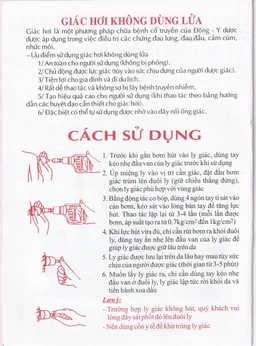 GIÁC HƠI KHÔNG DÙNG LỬA
Giác hơi là một phương pháp chữa bệnh cổ truyền của Đông - Y được
được áp dụng trong việc điều trị các chứng đau lưng, đau đầu, cảm cúm,
nhức mỏi.
– Ưu điểm sử dụng giác hơi không dùng lửa
1/ An toàn cho người sử dụng (không bị phỏng).
2/ Chủ động được lực giác (tùy vào sức chịu đựng của người được giác).
3/ Tiện lợi cho gia đình và đi du lịch.
4/ Rất dễ thao tác và không sợ bị lây bệnh truyền nhiễm.
5/ Tạo hiệu quả cao cho người sử dụng (khi thao tác theo bảng hướng
dẫn các huyệt đạo cần thiết cho giác hơi).
6/ Đặc biệt có thể tự sử dụng được nhờ vào dây nối ống giác.
CÁCH SỬ DỤNG
1. Trước khi gắn bơm hút vào ly giác, dùng tay
kéo nhẹ đầu van ly giác trước khi sử dụng
2. Úp miệng ly vào vị trí cần giác, đặt đầu bơm
giác trùm lên đuôi ly (giữ chiều thẳng đứng),
chọn ly giác phù hợp với vùng giác
3. Bằng động tác co bóp, dùng 4 ngón tay tì sát vào
cần bơm, kéo sát vào lòng bàn tay để tăng lực
hút. Thao tác lặp lại từ 3-4 lần (mỗi lần được
bơm, áp suất tạo ra từ 0.7kg/cm² đến 1kg/cm²)
4. Khi lực hút vừa đủ, chỉ cần rút bơm ra khỏi đuôi
ly, dùng tay ấn nhẹ lên đầu van của ly giác để
giúp ly giác được giữ lâu trên da
5. Ly giác được lưu lại trên da lâu hay mau tùy sức
chịu của người được giác (thời gian từ 3-5 phút)
6. Muốn lấy ly giác ra, chỉ cần dùng tay kéo nhẹ
đầu van ở đuôi ly, ly giác lập tức rời khỏi da và
tiến hành xoa dầu
Lưu ý:
- Trường hợp ly giác không hút, quý khách vui
lòng đẩy sát phốt đỏ lên đuôi ly
- Nên dùng cồn y tế để khử trùng ly giác